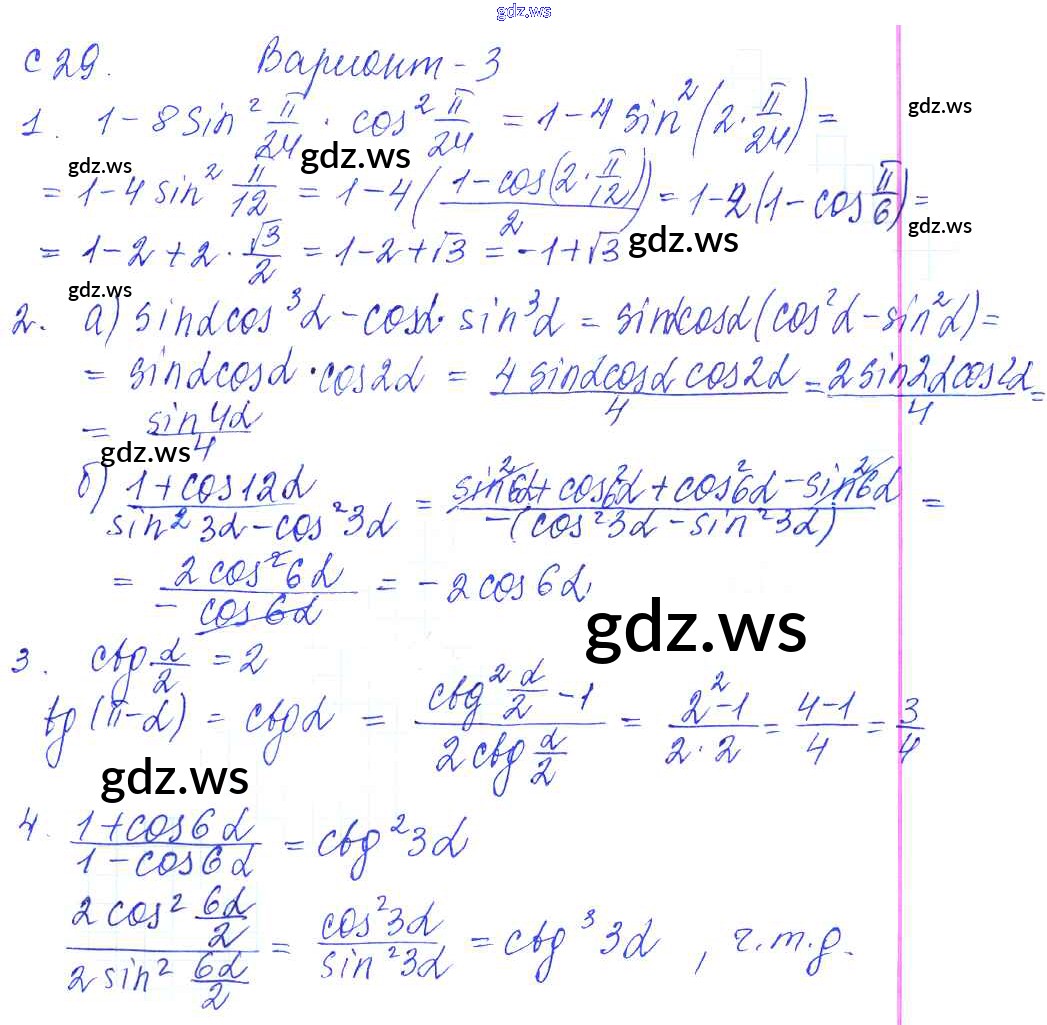 gdz.ws
С 29. Вариант - 3
gdz.ws
1. 1 - 8 sin² π/24 · cos² π/24 = 1 - 4 sin² (2 · π/24) =
gdz.ws gdz.ws
= 1 - 4 sin² π/12 = 1 - 4 ((1 - cos(2 · π/12))/2) = 1 - 2 (1 - cos π/6) =
gdz.ws gdz.ws
= 1 - 2 + 2 · √3/2 = 1 - 2 + √3 = -1 + √3
gdz.ws
2. а) sinαcos³α - cosα · sin³α = sinαcosα (cos²α - sin²α) =
= sinαcosα · cos2α = (4 sinαcosα cos2α)/4 = (2 sin2αcos2α)/4 =
= sin4α/4
gdz.ws
б) (1 + cos12α)/(sin² 3α - cos² 3α) = (sin²6α + cos²6α + cos²6α - sin²6α)/(-(cos²3α - sin²3α)) =
= (2 cos² 6α)/(- cos6α) = - 2 cos 6α
gdz.ws
3. ctg α/2 = 2
tg (π - α) = ctgα = (ctg² α/2 - 1)/(2 ctg α/2) = (2² - 1)/(2 · 2) = (4 - 1)/4 = 3/4
gdz.ws
4. (1 + cos6α)/(1 - cos6α) = ctg² 3α
(2 cos² 6α/2)/(2 sin² 6α/2) = (cos²3α)/(sin²3α) = ctg³ 3α, ч.т.д.